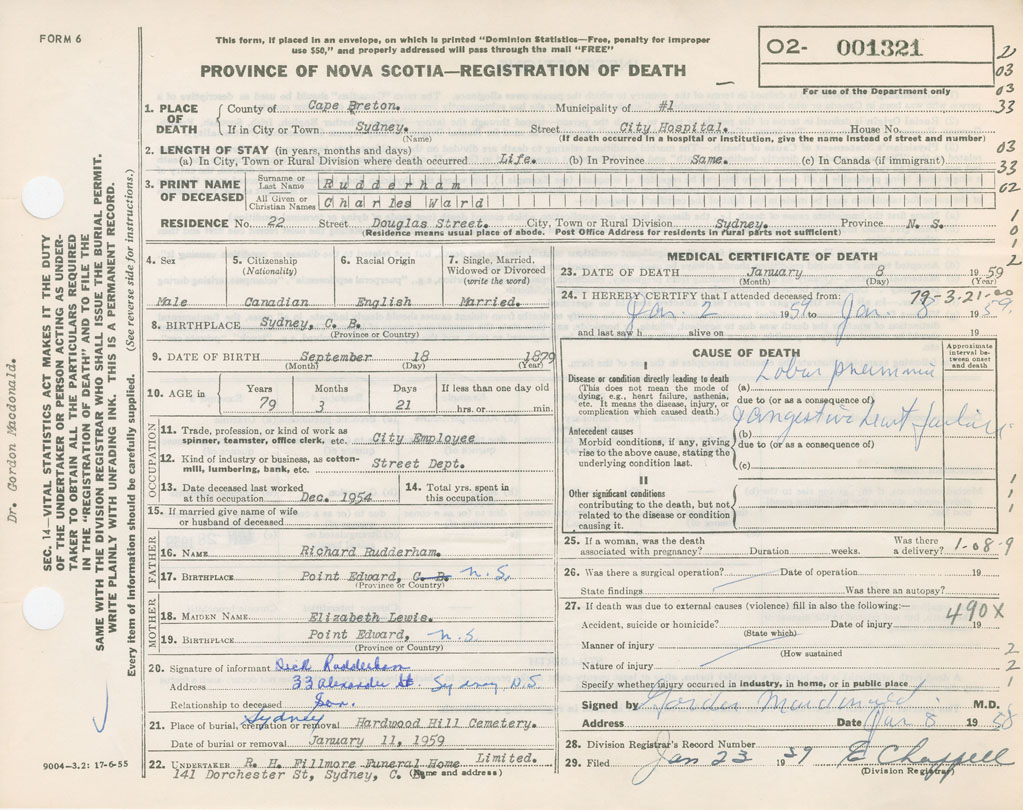 FORM 6
This form, if placed in an envelope, on which is printed "Dominion Statistics—Free, penalty for improper
use $50," and properly addressed will pass through the mail "FREE"
PROVINCE OF NOVA SCOTIA—REGISTRATION OF DEATH
02- 001321
For use of the Department only
2
03
03
33
03
33
02
1
0
1
2
1. PLACE OF DEATH
County of Cape Breton. Municipality of #1
If in City or Town Sydney. Street City Hospital. House No.
(Name) (If death occurred in a hospital or institution, give the name instead of street and number)
2. LENGTH OF STAY (in years, months and days)
(a) In City, Town or Rural Division where death occurred Life. (b) In Province Same. (c) In Canada (if immigrant)
3. PRINT NAME OF DECEASED
Surname or Last Name Rudderham
All Given or Christian Names Charles Ward
RESIDENCE No. 22 Street Douglas Street. City, Town or Rural Division Sydney. Province N. S.
(Residence means usual place of abode. Post Office Address for residents in rural parts not sufficient)
4. Sex Male
5. Citizenship (Nationality) Canadian
6. Racial Origin English
7. Single, Married, Widowed or Divorced (write the word) Married.
8. BIRTHPLACE Sydney, C. B.
(Province or Country)
9. DATE OF BIRTH September 18 1879
(Month) (Day) (Year)
10. AGE in Years Months Days If less than one day old
79 3 21 hrs. or min.
OCCUPATION
11. Trade, profession, or kind of work as spinner, teamster, office clerk, etc. City Employee
12. Kind of industry or business, as cotton-mill, lumbering, bank, etc. Street Dept.
13. Date deceased last worked at this occupation Dec. 1954
14. Total yrs. spent in this occupation
15. If married give name of wife or husband of deceased
FATHER
16. NAME Richard Rudderham.
17. BIRTHPLACE Point Edward, C. B. N.S.
(Province or Country)
MOTHER
18. MAIDEN NAME Elizabeth Lewis.
19. BIRTHPLACE Point Edward, N.S
(Province or Country)
20. Signature of informant Dick Rudderham
Address 33 Alexander St. Sydney N.S
Relationship to deceased Son.
21. Place of burial, cremation or removal Sydney Hardwood Hill Cemetery.
Date of burial or removal January 11, 1959
22. UNDERTAKER R. H. Fillmore Funeral Home Limited.
141 Dorchester St, Sydney, C. (Name and address)
MEDICAL CERTIFICATE OF DEATH
23. DATE OF DEATH January 8 1959
(Month) (Day) (Year)
24. I HEREBY CERTIFY that I attended deceased from: 79-3-21-00
Jan. 2 1959 to Jan. 8 1959.
and last saw h alive on 19
CAUSE OF DEATH
Approximate interval between onset and death
I
Disease or condition directly leading to death
(This does not mean the mode of dying, e.g., heart failure, asthenia, etc. It means the disease, injury, or complication which caused death.)
(a) Lobar pneumonia
due to (or as a consequence of)
Antecedent causes
Morbid conditions, if any, giving rise to the above cause, stating the underlying condition last.
(b) Congestive heart failure
due to (or as a consequence of)
(c)
II
Other significant conditions
contributing to the death, but not related to the disease or condition causing it.
1
1
1
25. If a woman, was the death associated with pregnancy? Duration weeks. Was there a delivery? 1-08-9
26. Was there a surgical operation? Date of operation 19
State findings Was there an autopsy?
27. If death was due to external causes (violence) fill in also the following:—
490X
Accident, suicide or homicide? Date of injury 19
(State which)
Manner of injury 2
(How sustained
Nature of injury 2
Specify whether injury occurred in industry, in home, or in public place 1
Signed by Gordon Macdonald M.D.
Address Date Jan 8 1958
28. Division Registrar's Record Number
29. Filed Jan 23 1959 E Chappell
(Division Registrar)
9004—3.2: 17-6-55
Dr. Gordon Macdonald.
SEC. 14—VITAL STATISTICS ACT MAKES IT THE DUTY
OF THE UNDERTAKER OR PERSON ACTING AS UNDER-
TAKER TO OBTAIN ALL THE PARTICULARS REQUIRED
IN THE "REGISTRATION OF DEATH" AND TO FILE THE
SAME WITH THE DIVISION REGISTRAR WHO SHALL ISSUE THE BURIAL PERMIT.
WRITE PLAINLY WITH UNFADING INK. THIS IS A PERMANENT RECORD.
Every item of information should be carefully supplied. (See reverse side for instructions.)